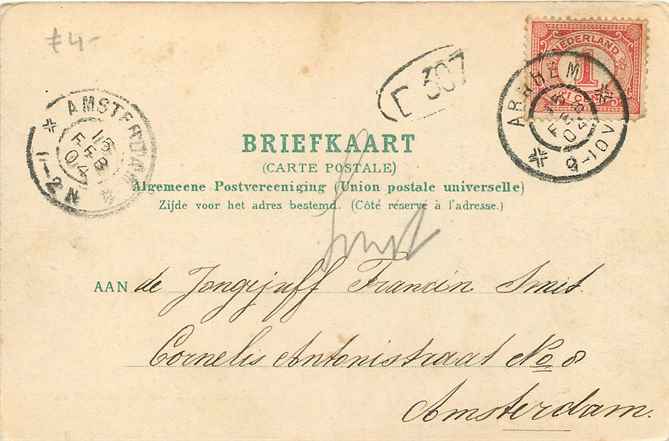 £4-
NEDERLAND
1
ARNHEM
9-10V
D 307
AMSTERDAM
15
FEB
04
1-2N
BRIEFKAART
(CARTE POSTALE)
Algemeene Postvereeniging (Union postale universelle)
Zijde voor het adres bestemd. (Côté réservé à l'adresse.)
Smit
AAN de Jongejuff Francin Smit
Cornelis Antonistraat No 8
Amsterdam.